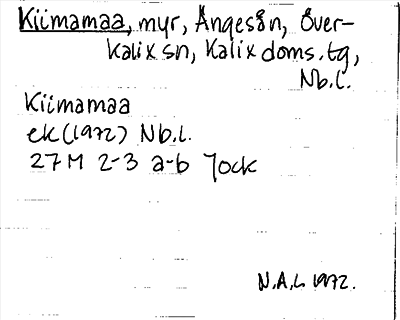 Kiimamaa, myr, Ängesån, Över-
kalix sn, Kalix doms.tg,
Nb.l.
Kiimamaa
ek(1972) Nb.l.
27M 2-3 a-b Jock
N.A.L 1972.